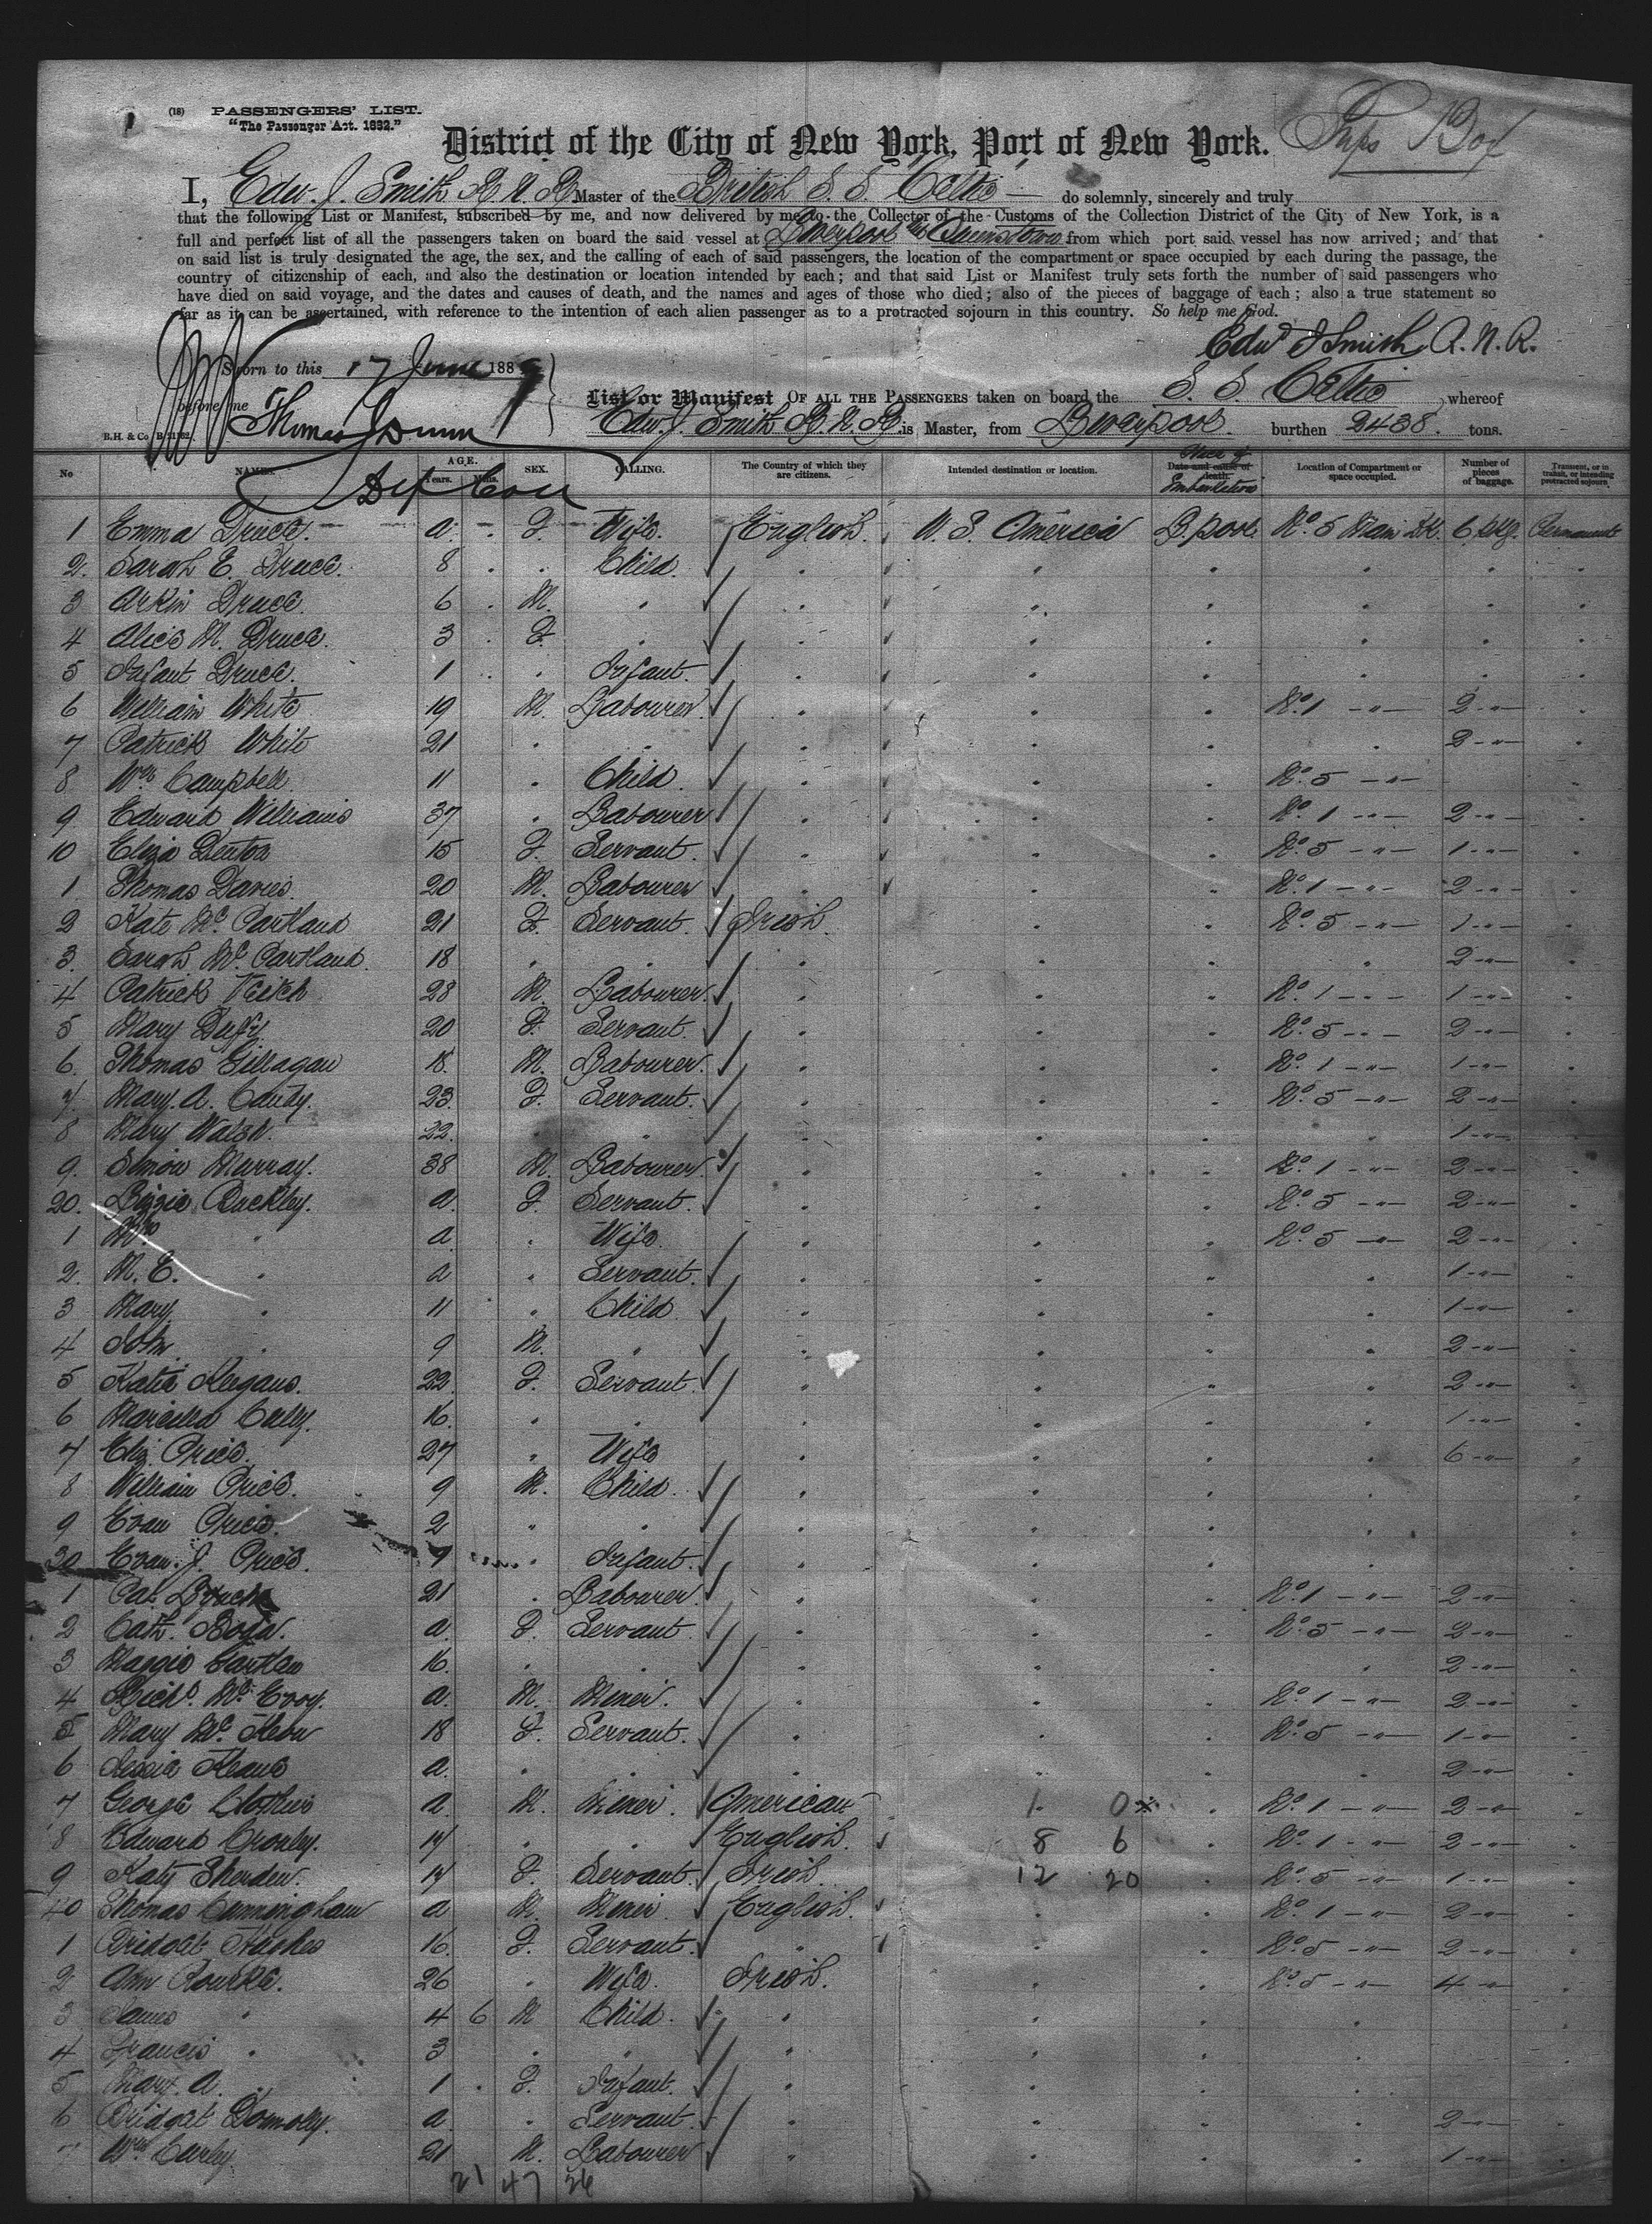 (18) PASSENGERS' LIST.
"The Passenger Act. 1882."
District of the City of New York, Port of New York.
I, Edw. J. Smith R.N.R. Master of the British S S Celtic do solemnly, sincerely and truly
that the following List or Manifest, subscribed by me, and now delivered by me to the Collector of the Customs of the Collection District of the City of New York, is a
full and perfect list of all the passengers taken on board the said vessel at Liverpool & Queenstown from which port said vessel has now arrived; and that
on said list is truly designated the age, the sex, and the calling of each of said passengers, the location of the compartment or space occupied by each during the passage, the
country of citizenship of each, and also the destination or location intended by each; and that said List or Manifest truly sets forth the number of said passengers who
have died on said voyage, and the dates and causes of death, and the names and ages of those who died; also of the pieces of baggage of each; also a true statement so
far as it can be ascertained, with reference to the intention of each alien passenger as to a protracted sojourn in this country. So help me God.
Edwd J Smith R.N.R.
Sworn to this 17 June 1889
before me Thomas Dunn
Dep Col
List or Manifest OF ALL THE PASSENGERS taken on board the S. S. Celtic whereof
Edw. J. Smith R.N.R. is Master, from Liverpool burthen 2438. tons.
B.H. & Co.
No NAMES. AGE. Years. Mths. SEX. CALLING. The Country of which they are citizens. Intended destination or location. Date and cause of death. Place of Embarkation Location of Compartment or space occupied. Number of pieces of baggage. Transient, or in transit, or intending protracted sojourn
1 Emma Druce. a. F. Wife. English. U. S. America L.pool No. 5 Main Dk. 6 pkg. Permanent
2. Sarah E. Druce. 8 " " Child.
3 Arkin Druce. 6 M. "
4 Alice M. Druce. 3 F. "
5 Infant Druce. 1 " Infant.
6 William White 19 M. Labourer. No. 1 - " - 2 - " -
7 Patrick White 21 " " " 2 - " -
8 Wm. Campbell 11 " Child. No. 5 - " -
9. Edward Williams 37 " Labourer No. 1 - " - 2 - " -
10 Eliza Denton 15 F. Servant. No. 5 - " - 1 - " -
1 Thomas Davies 20 M. Labourer No. 1 - " - 2 - " -
2 Kate McPartland 21 F. Servant. Irish. No. 5 - " - 1 - " -
3. Sarah McPartland. 18 " " " 2 - " -
4 Patrick Veitch 28 M. Labourer. No. 1 - " - 1 - " -
5 Mary Duffy. 20 F. Servant. No. 5 - " - 2 - " -
6. Thomas Gillagan 18. M. Labourer. No. 1 - " - 1 - " -
7. Mary. A. 23. F. Servant. No. 5 - " - 2 - " -
8 Mary Walsh. 22. " " " 1 - " -
9. Simon Murray. 38 M. Labourer. No. 1 - " - 2 - " -
20. Lizzie Buckley. a. F. Servant. No. 5 - " - 2 - " -
1 " a " Wife. No. 5 - " - 2 - " -
2. M. E. " a " Servant. " 1 - " -
3 Mary. " 11 " Child " 1 - " -
4 John " 9 M. " " 2 - " -
5 Katie Keegans. 22. F. Servant. " 2 - " -
6 16. " " " 1 - " -
7 Eliz. Price. 27 " Wife " 6 - " -
8 William Price. 9 M. Child.
9 Evan Price. 2 " "
30 Evan. J. Price. " Infant.
1 Pat. Lynch 21 " Labourer. No. 1 - " - 2 - " -
2 Cath. a F. Servant. No. 5 - " - 2 - " -
3 Maggie 16. " " " 2 - " -
4 Richd. McEvoy. a. M. Miner. No. 1 - " - 2 - " -
5 Mary 18 F. Servant. No. 5 - " - 1 - " -
6 a. " " " 2 - " -
7 George a. M. Miner. American 1. 0 No. 1 - " - 2 - " -
8 Edward 17 " " English. 8 6 No. 1 - " - 2 - " -
9 Katy 17 F. Servant. Irish. 12 20 No. 5 - " - 1 - " -
40 Thomas Cunningham a M. Miner. English. No. 1 - " - 2 - " -
1 Bridget Hughes 16. F. Servant. " No. 5 - " - 2 - " -
2 Ann Rourke. 26 " Wife. Irish. No. 5 - " - 4 - " -
3 James " 4 6 M Child.
4 Francis " 3 " "
5 Mary. A. " 1 F. Infant.
6 Bridget a. " Servant. 2 - " -
7 Wm. Curley. 21 M. Labourer 1 - " -
21 47 26